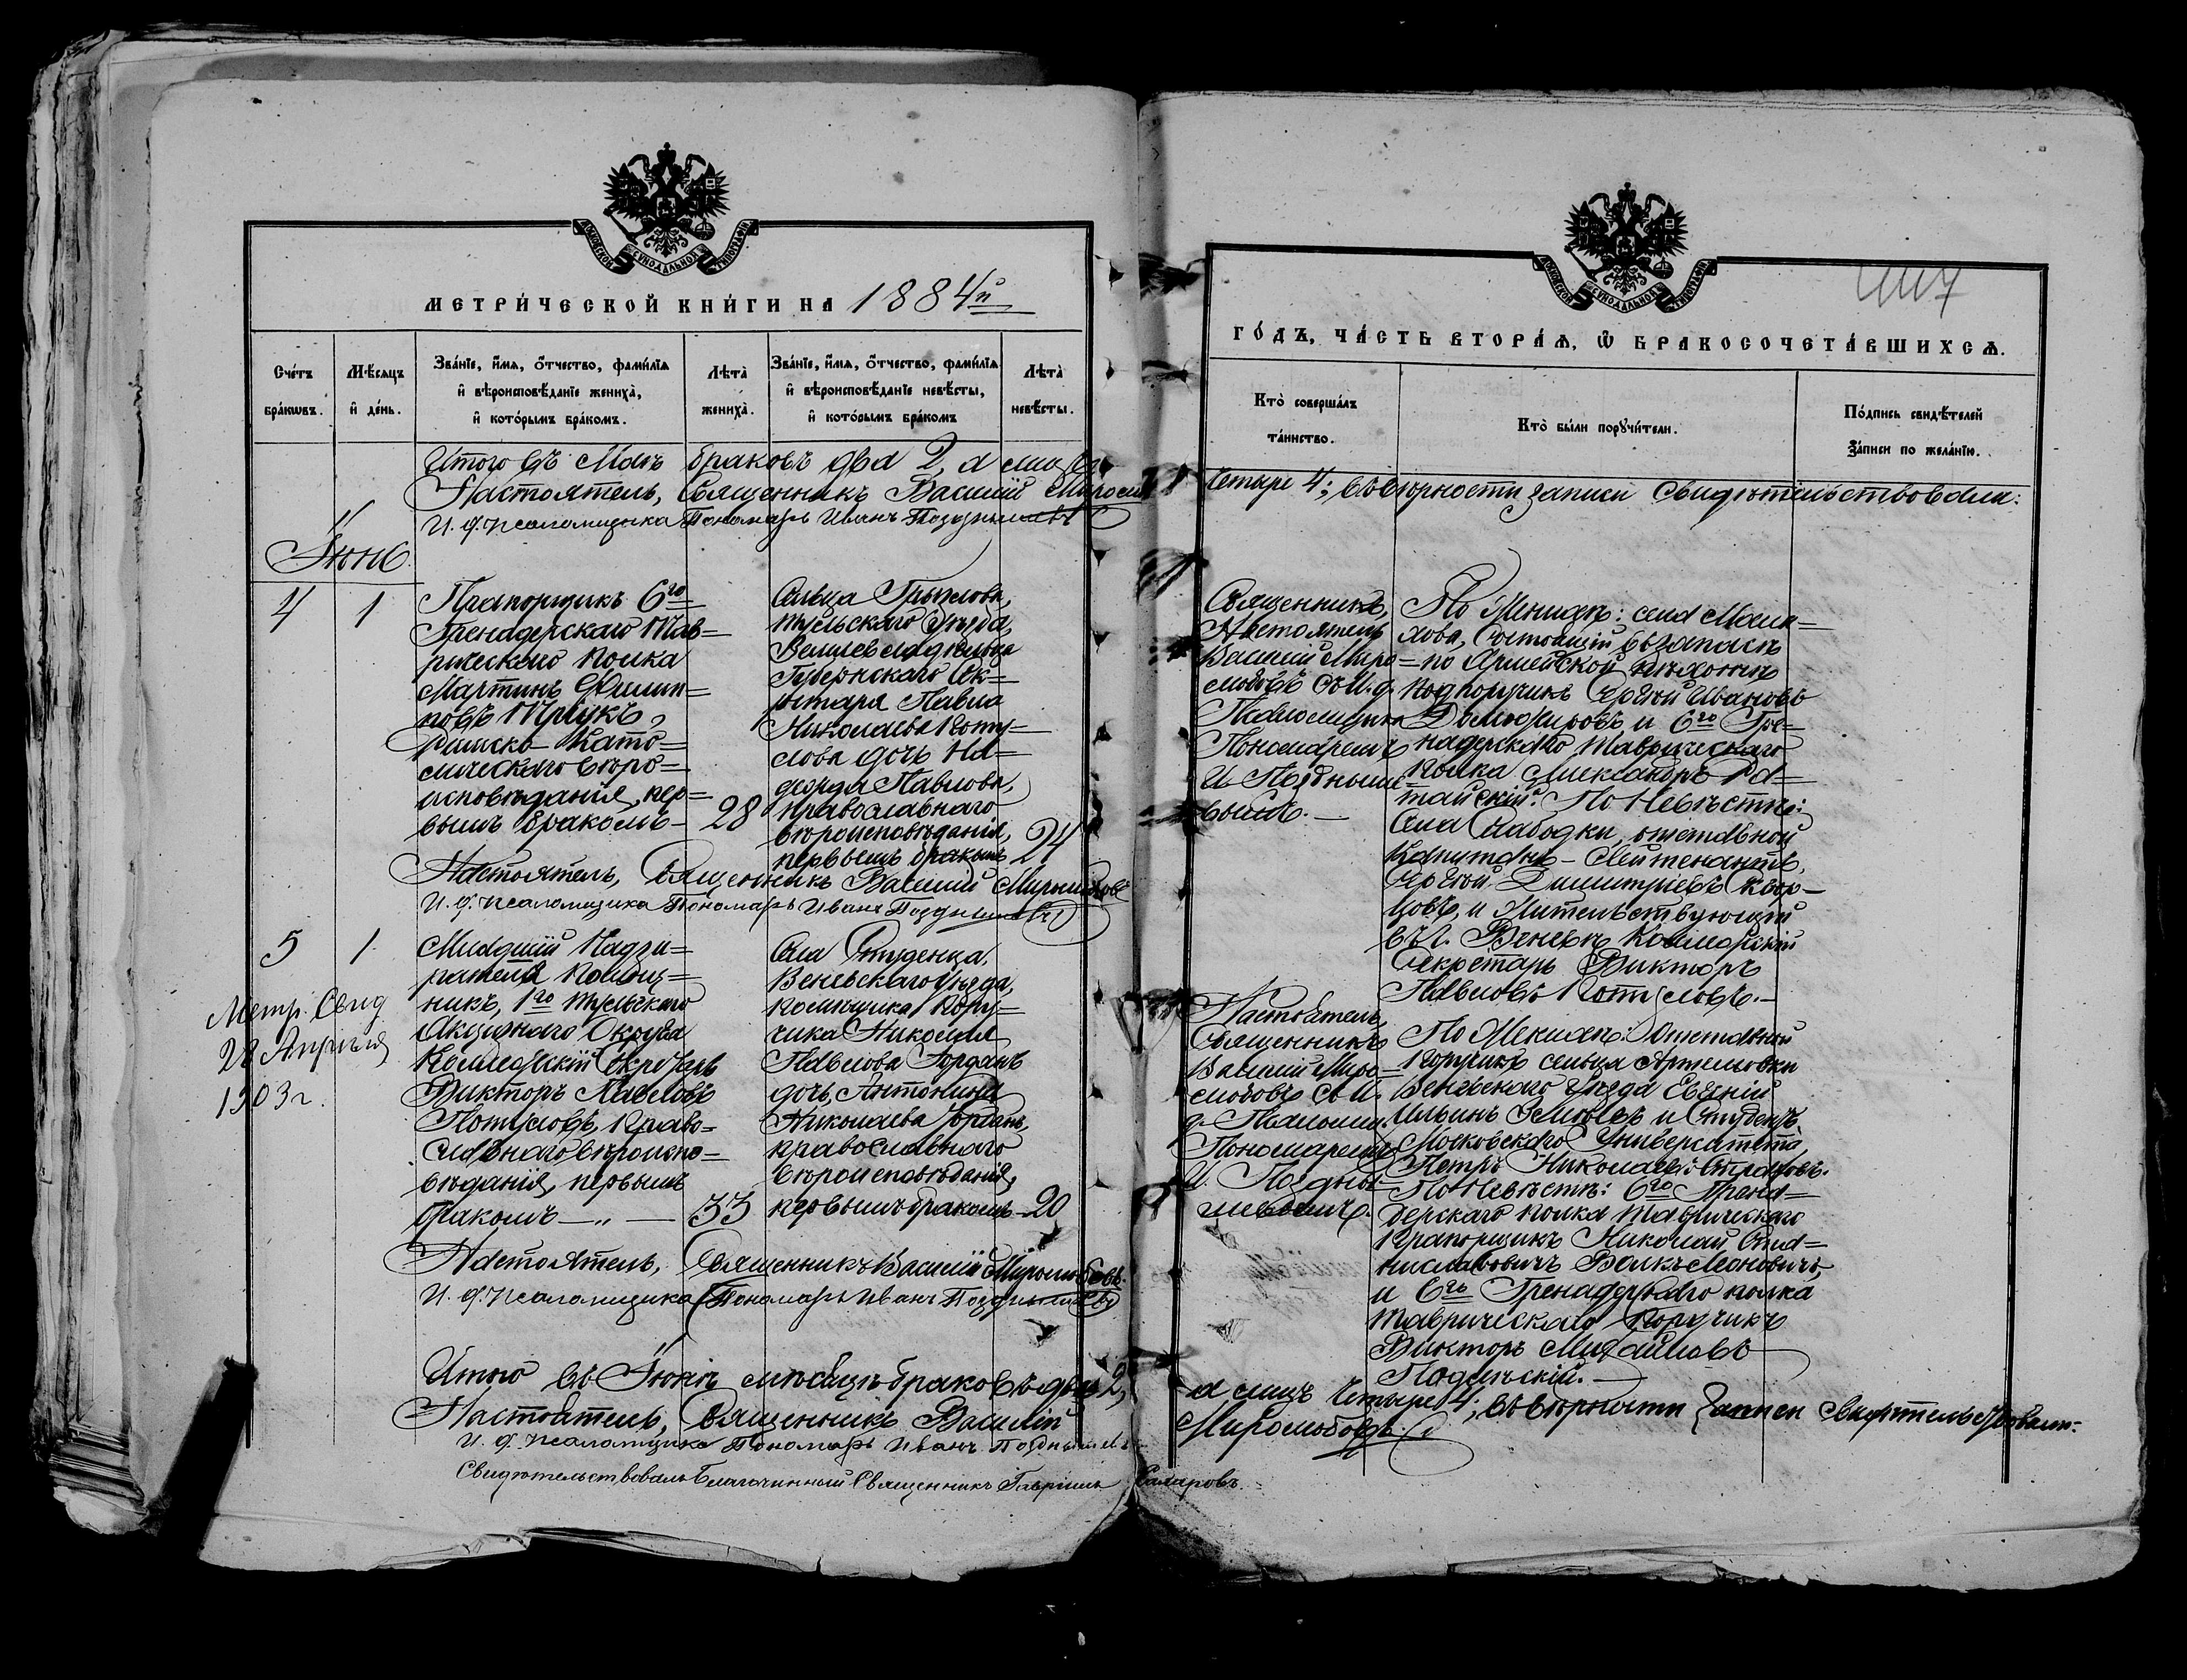 МОСКОВСКОЙ СѴНОДАЛЬНОЙ ТИПОГРАФІИ
МЕТРИ́ЧЕСКОЙ КНИ́ГИ НА 1884й
Сче́тъ бра́кѡвъ.
Мѣ́сяцъ и҆ де́нь.
Зва́нїе, и҆́мя, ѻ҆́тчество, фами́лїя и҆ вѣроисповѣ́данїе жениха̀, и҆ кото́рымъ бра́комъ.
Лѣта̀ жениха̀.
Зва́нїе, и҆́мя, ѻ҆́тчество, фами́лїя и҆ вѣроисповѣ́данїе невѣ́сты, и҆ кото́рымъ бра́комъ
Лѣта̀ невѣ́сты.
Итого въ Маѣ браковъ два 2, а лицъ
Настоятель, Священникъ Василій
И. д. псаломщика Пономарь Иванъ Позднышевъ
Іюнь.
4
1
Прапорщикъ 6го
Гренадерскаго Тав=
рическаго полка
Мартинъ Филип=
повъ
Римско-Като=
лическаго вѣро=
исповѣданія, пер=
вымъ бракомъ –
28
Сельца
тульскаго уѣзда,
Губернскаго Сек=
ретаря Павла
Николаева Поту=
лова дочь На=
дежда Павлова,
православнаго
вѣроисповѣданія,
первымъ бракомъ
24
Настоятель, Священникъ Василій Миролюбовъ
И. д. псаломщика Пономарь Иванъ Позднышевъ
5
1.
Метр. Свид
28 Апрѣля
1903 г.
Младшій Надзи=
ратель Помощ=
никъ, 1го тульскаго
Акцизнаго Округа
Коллежскій Секретарь
Викторъ Павловъ
Потуловъ, Право=
славнаго вѣроиспо=
вѣданія, первымъ
бракомъ — „ —
33
Села Студенца,
Веневскаго уѣзда,
помѣщика Пору=
чика Николая
Павлова Іорданъ
дочь, Антонина
Николаева Іорданъ,
православнаго
вѣроисповѣданія,
первымъ бракомъ –
20
Настоятель, Священникъ Василій Миролюбовъ.
И. д. псаломщика Пономарь Иванъ Позднышевъ
Итого въ Іюнѣ мѣсяцѣ браковъ два 2,
Настоятель, Священникъ Василій
И. д. псаломщика Пономарь Иванъ Позднышевъ
Свидѣтельствовалъ Благочинный Священникъ Гавріилъ Сахаровъ.
МОСКОВСКОЙ СѴНОДАЛЬНОЙ ТИПОГРАФІИ
ГО́ДЪ, ЧА́СТЬ ВТОРА́Ѧ, Ѽ БРАКОСОЧЕТА́ВШИХСѦ.
Кто̀ соверша́лъ та́инство.
Кто̀ бы́ли порꙋчи́тели.
По́дпись свидѣ́телей За́писи по жела́нїю.
четыре 4; вѣрность записи свидѣтельствовали:
Священникъ,
Настоятель
Василій Миро=
любовъ съ И. д.
Псаломщика
Пономаремъ
И. Поздныше
вымъ. —
По Женихѣ: села Мали=
хова, состоящій въ запасѣ
по Армейской пѣхотѣ
подпоручикъ Сергѣй Ивановъ
и 6го Гре=
надерскаго Таврическаго
полка Александръ
По Невѣстѣ:
Села Слободки, отставной
Капитанъ-Лейтенантъ,
Сергѣй Димитріевъ
и Жительствующій
въ г. Веневѣ Коллежскій
Секретарь Викторъ
Павловъ Потуловъ. –
Настоятель,
Священникъ
Василій Миро=
любовъ съ И.
д. Псаломщ.
Пономаремъ
И. Поздны
шевымъ.
По Женихѣ: Отставной
Поручикъ сельца Артемовки
Веневскаго уѣзда Евгеній
Ильинъ и Студентъ
Московскаго Университета
Петръ Николаевъ
По Невѣстѣ: 6го Грена=
дерскаго полка Таврическаго
Прапорщикъ Николай Ста=
ниславовичъ
и 6го Гренадерскаго полка
Таврическаго Поручикъ
Викторъ Михайловъ
а лицъ четыре 4; вѣрность записи свидѣтельствовали:
Миролюбовъ.